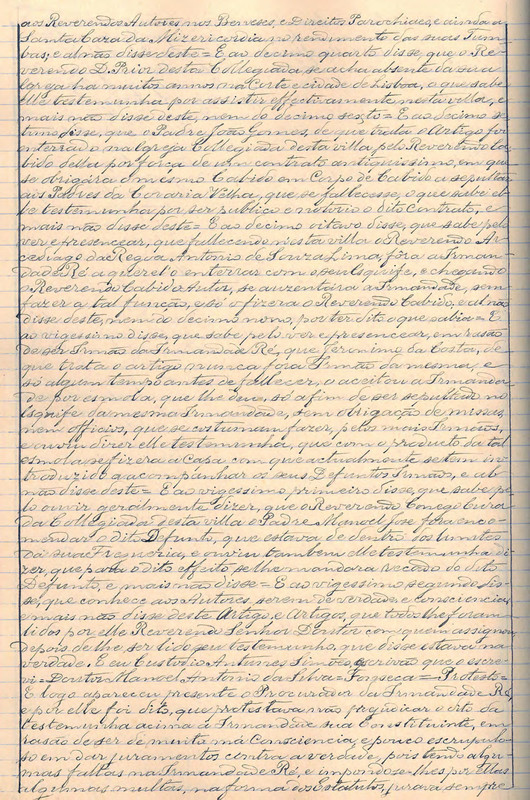 aos Reverendos Autores nos Beneses, e Direitos Parochiaes, e ainda a
Santa Caza da Mizericordia no rendimento das suas Tum
bas; e al não disse deste = E ao decimo quarto disse, que o Re-
verendo D. Prior desta Collegiada se acha absente da sua
Igreja ha muitos annos na Corte e cidade de Lisboa, o que sabe
elle testemunha por assistir effectivamente nesta villa, e
mais não disse deste, nem do decimo sexto = E ao decimo se
timo disse, que o Padre João Gomes, de que trata o Artigo foi
interrado na Igreja Collegiada desta villa, pelo Reverendo Ca
bido della por força de um contrato antiquissimo, em que
se obrigára o mesmo Cabido em Corpo de Cabido a sepultar
aos Padres da Coraria Velha, que fallecesse, o que sabe el-
le testemunha por ser publico e notorio o dito Contrato, e
mais não disse deste = E ao decimo oitavo disse, que sabe pelo
ver e presencear, que fallecendo n'esta villa o Reverendo Ar-
cediago da Regoa, Antonio de Souza Lima, fora a Irman-
dade Ré a querel-o enterrar com o seu Esquife, e chegando
o Reverendo Cabido Autor, se auzentára a Irmandade, sem
fazer a tal função, e só o fizera o Reverendo Cabido, e al não
disse deste, nem do decimo nono, por ter dito o que sabia = E
ao vigesimo disse, que sabe pelo ver e presencear, em rasão
de ser Irmão da Irmandade Ré, que Jeronimo da Costa, de
que trata o artigo nunca fora Irmão da mesma, e
só algum tempo antes de fallecer, o aceitou a Irmanda-
de por esmola, que lhe deu, só a fim de ser sepultado no
Esquife da mesma Irmandade, sem obrigação de missas,
nem officios, que se costumam fazer, pelos mais Irmãos,
e ouviu dizer elle testemunha, que com o producto da tal
esmola se fizera a Capa com que actualmente se tem in
troduzido a acompanhar os seus Defuntos Irmãos, e al
não disse deste = E ao vigessimo primeiro disse, que sabe pe
lo ouvir geralmente dizer, que o Reverendo Conego Cura
da Collegiada desta villa o Padre Manoel José fora enco-
mendar o dito Defunto, que estava de dentro dos limites
da sua Freguezia, e ouviu tambem elle testemunha di
zer, que para o dito effeito se lhe mandara recado do dito
Defunto, e mais não disse = E ao vigessimo segundo dis-
se, que conhece aos Autores, serem de verdade e consciencia
e mais não disse deste Artigo, e Artigos, que todos lhe foram
lidos por elle Reverendo Senhor Doutor com quem assignou
depois de lhe ser lido seu testemunho, que disse estava na
verdade. E eu Custodio Antunes Simões, escrivão que o escre-
vi = Doutor Manoel Antonio da Silva = Fonseca = Protesto =
E logo appareceu presente o Procurador da Irmandade Ré,
e por elle foi dito, que protestava não prejuicar o dito da
testemunha acima á Irmandade sua Constituinte, em
rasão de ser de muito má Consciencia e pouco escrupulo
so em dar juramentos contra a verdade, pois tendo algu
mas faltas na Irmandade Ré, e impondo-se-lhes por ellas
algumas multas, na forma dos Estatutos, jurava sempre